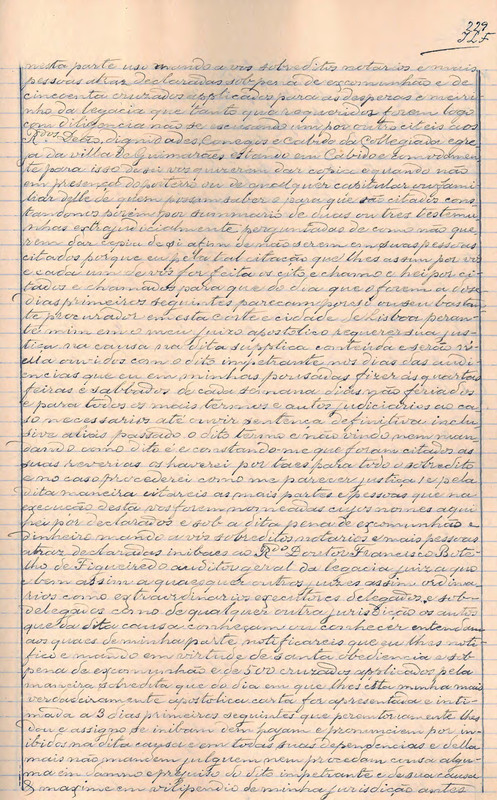 229
nesta parte uso mando a vis sobreditos notarios e mais
pessoas atraz declaradas sob pena de excomunhão e de
cincoenta cruzados applicados para as despezas e meiri
nho da legacia que tanto que requeridos forem logo
com diligencia não se escusando um por outro citeis aos
R.dos Deão, dignidades, Conegos e Cabido da Collegiada egre
ja da villa de Guimarães estando em Cabido
te para isso se vos quizerem dar copia e quando não
em presença do porteiro ou de qualquer capitular ou fami
liar delle de quem possam saber e para que são citados cons
tando-nos porém por summario de duas ou tres testemu
nhas extrajudicialmente perguntadas de como não que
rem dar copia de si afim de não serem em suas pessoas
citados porque eu pela tal citação que lhes assim por vós
e cada um de vós for feita os cito e chamo e hei por ci
tados e chamados para que do dia que o forem a doze
dias primeiros seguintes pareçam por si ou seu bastan
te procurador em esta côrte e cidade de Lisboa peran
te mim em o meu juizo apostolico requerer sua jus
tiça na causa na dita supplica contida e serão n'
ella ouvidos com o dito impetrante nos dias das audi
encias que eu em minhas pousadas fizer ás quartas
feiras e sabbados de cada semana dias não feriados
e para todos os mais termos e autos judiciarios ao ca
so necessarios até ouvir sentença definitiva inclu
sive aliás passado o dito termo e não vindo nem man
dando como dito é e constando-me que foram citados ás
suas reverias os haverei por taes para todo o sobredito
e no caso procederei como me parecer justiça e pela
dita maneira citareis as mais partes e pessoas que na
execução desta vos forem nomeadas cujos nomes aqui
hei por declarados e sob a dita pena de excomunhão e
dinheiro mando a vós sobreditos notarios e mais pessoas
atraz declaradas inibaes ao R.do Doutor Francisco Bote
lho de Figueiredo auditor geral da legacia juiz a quo
e bem assim a quaesquer outros juizes assim ordina
rios como extraordinarios executores delegados e sub-
delegados como de qualquer outra jurisdicção os autos
que da dita causa conheçam ou conhecer entendam
aos quaes de minha parte notificareis que eu lhes noti
fico e mando em virtude de santa obediencia e sob
pena de excomunhão e de 500 cruzados applicados pela
maneira sobredita que do dia em que lhes esta minha mais
verdadeiramente apostolica carta for apresentada e inti
mada a 3 dias primeiros seguintes que peremtoriamente lhes
dou e assigno se inibam dêm hajam e pronunciem por in
ibidos na dita causa e em todas suas dependencias e della
mais não mandem julguem nem procedam cousa algu
ma em damno e prejuizo do dito impetrante e de sua causa
& maxime em vilipendio de minha jurisdicção antes